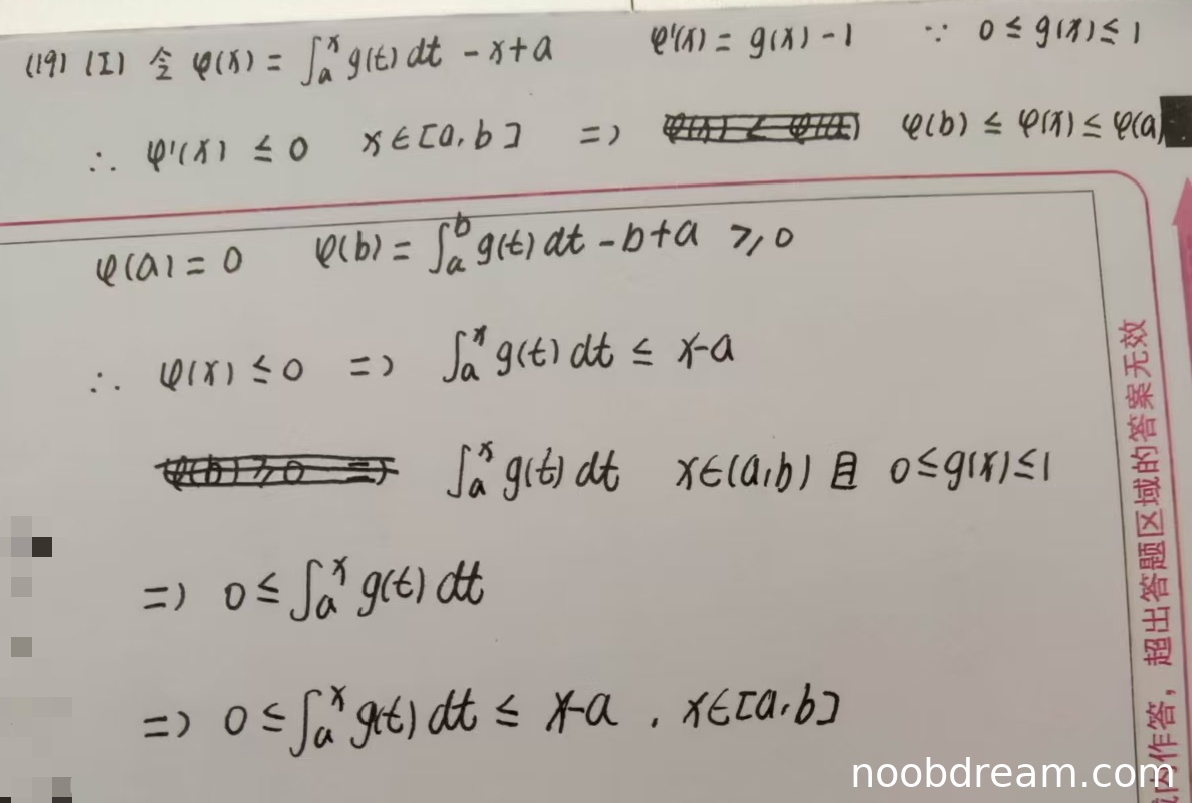 (19) (I) 令 φ(x) = ∫ₐˣ g(t) dt - x+a φ'(x) = g(x) - 1 ∵ 0 ≤ g(x) ≤ 1
∴ φ'(x) ≤ 0 x∈[a,b] => φ(b) ≤ φ(x) ≤ φ(a)
φ(a) = 0 φ(b) = ∫ₐᵇ g(t) dt - b+a ≥ 0
∴ φ(x) ≤ 0 => ∫ₐˣ g(t) dt ≤ x-a
φ(b) ≥ 0 => ∫ₐˣ g(t) dt x∈(a,b) 且 0≤g(x)≤1
=> 0 ≤ ∫ₐˣ g(t) dt
=> 0 ≤ ∫ₐˣ g(t) dt ≤ x-a , x∈[a,b]
域内作答，超出答题区域的答案无效
noobdream.com